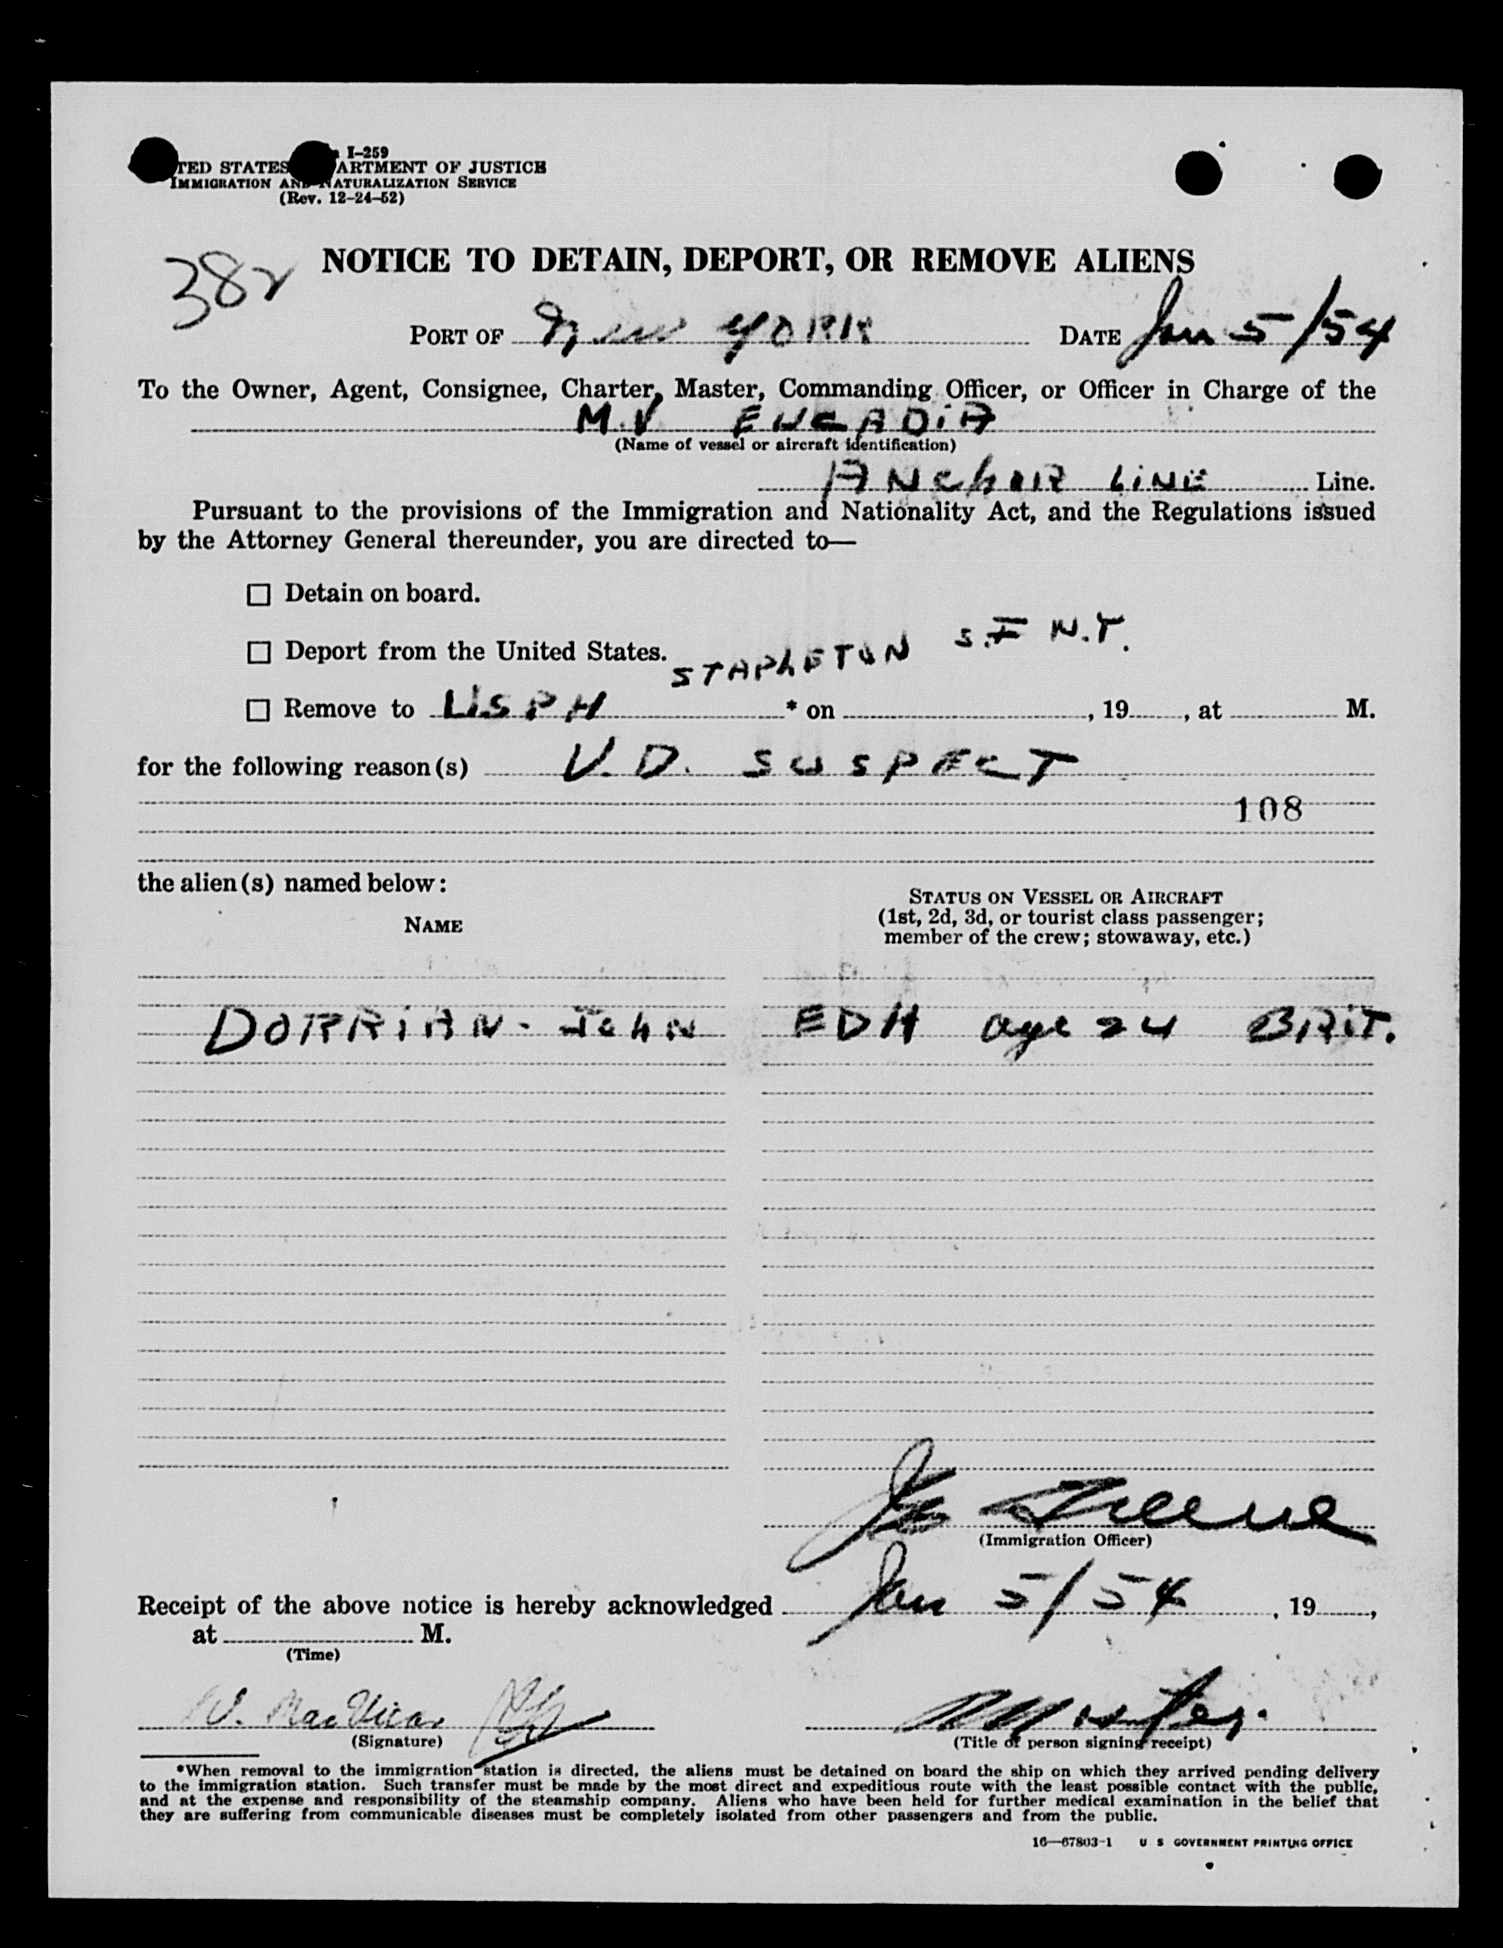 I-259
TED STATES ARTMENT OF JUSTICE
IMMIGRATION AND NATURALIZATION SERVICE
(Rev. 12-24-52)
382
NOTICE TO DETAIN, DEPORT, OR REMOVE ALIENS
PORT OF New YORK DATE Jan 5/54
To the Owner, Agent, Consignee, Charter, Master, Commanding Officer, or Officer in Charge of the
M.V EUCADIA
(Name of vessel or aircraft identification)
ANCHOR LINE Line.
Pursuant to the provisions of the Immigration and Nationality Act, and the Regulations issued
by the Attorney General thereunder, you are directed to—
☐ Detain on board.
☐ Deport from the United States. STAPLETON S.I N.Y.
☐ Remove to USPH * on , 19 , at M.
for the following reason(s) V.D. SUSPECT
108
the alien(s) named below:
NAME
STATUS ON VESSEL OR AIRCRAFT
(1st, 2d, 3d, or tourist class passenger;
member of the crew; stowaway, etc.)
DORRIAN - John EDH age 24 BRIT.
Greene
(Immigration Officer)
Receipt of the above notice is hereby acknowledged Jan 5/54 , 19 ,
at M.
(Time)
W. MacVicar
(Signature)
(Title of person signing receipt)
*When removal to the immigration station is directed, the aliens must be detained on board the ship on which they arrived pending delivery
to the immigration station. Such transfer must be made by the most direct and expeditious route with the least possible contact with the public,
and at the expense and responsibility of the steamship company. Aliens who have been held for further medical examination in the belief that
they are suffering from communicable diseases must be completely isolated from other passengers and from the public.
16—67803-1 U S GOVERNMENT PRINTING OFFICE